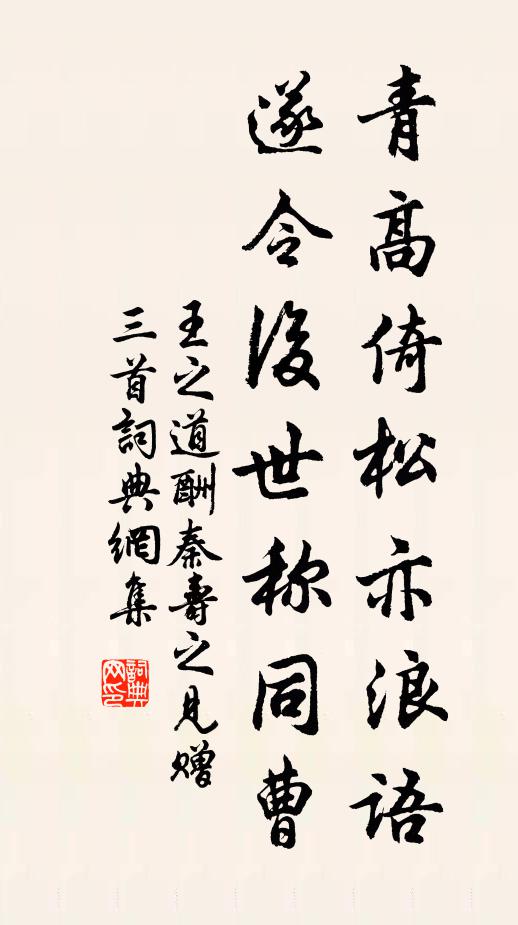 青高倚松亦浪语
遂令後世称同曹
王之道酬秦寿之见赠
三首詞典網集
詞典网印